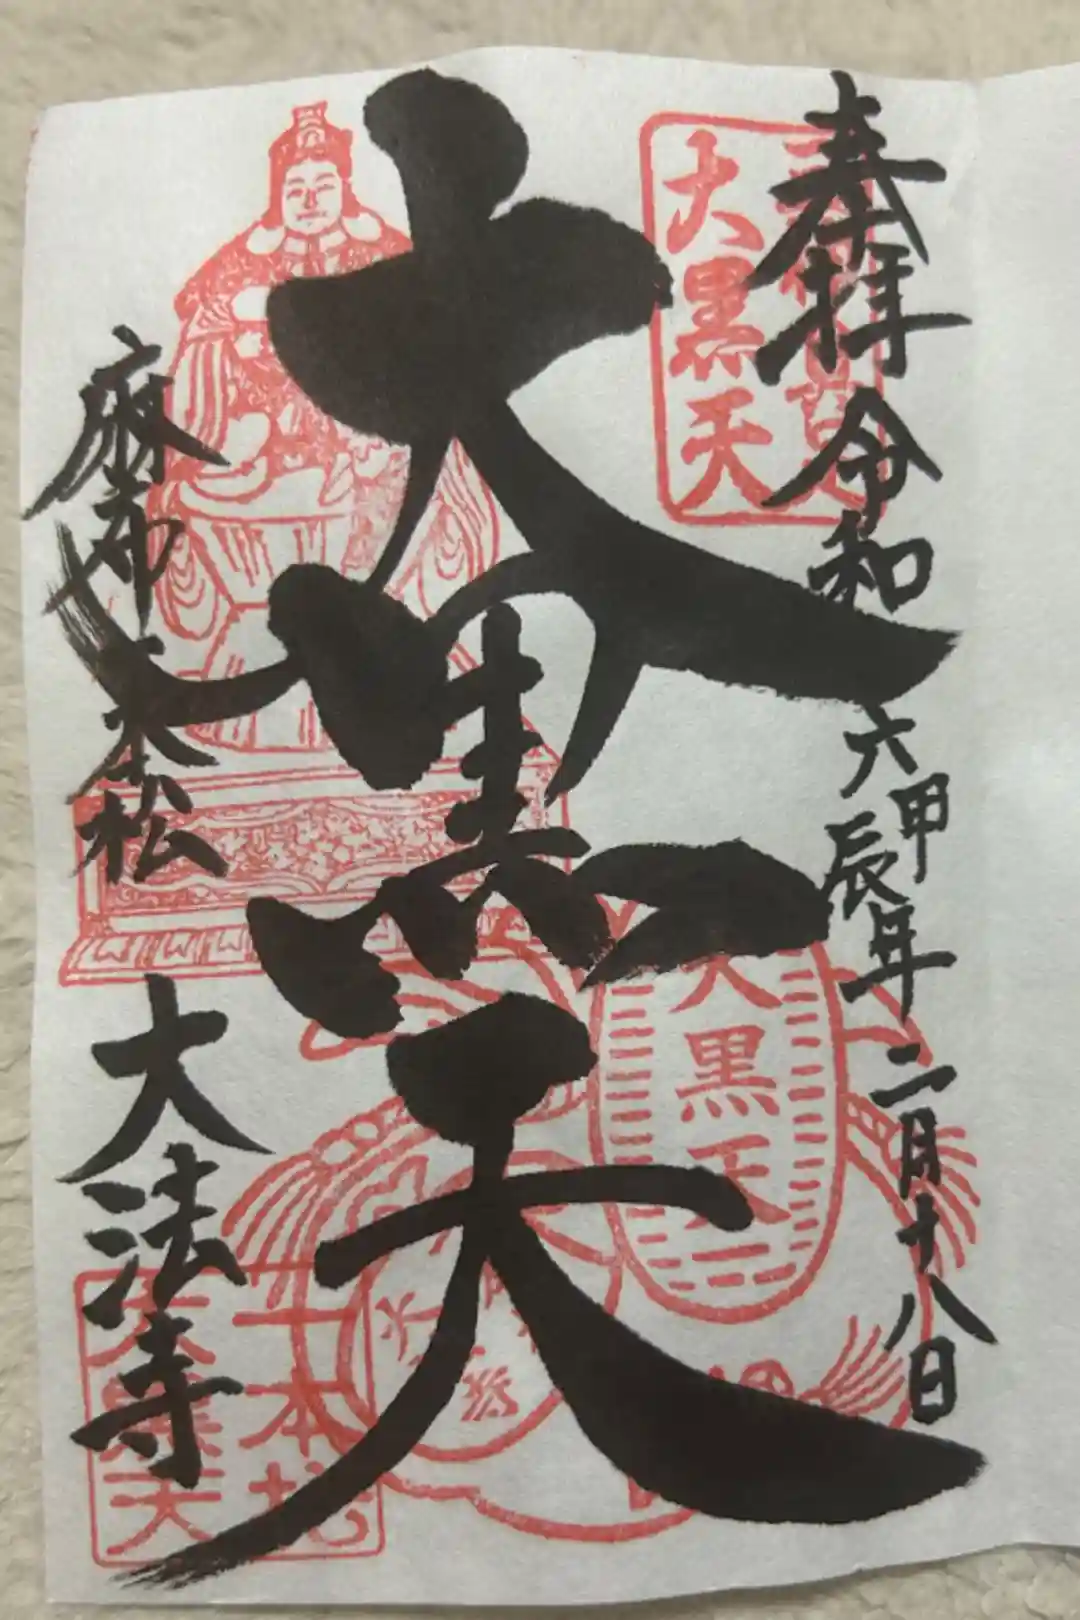 奉拝 令和六甲辰年二月十八日
大黒天
大黒天
麻布一本松 大法寺
大黒天
一本松
大黒天